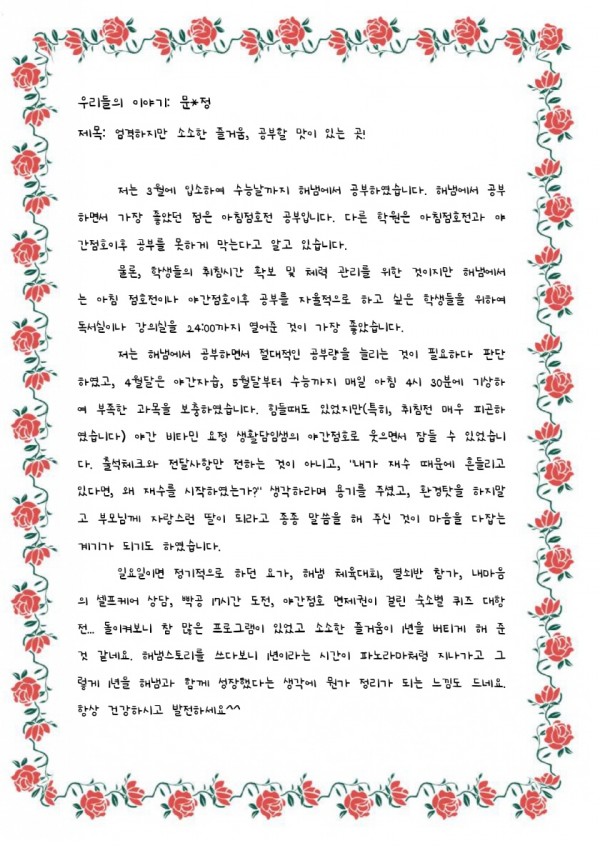 우리들의 이야기: 문*정
제목: 엄격하지만 소소한 즐거움, 공부할 맛이 있는 곳!
저는 3월에 입소하여 수능날까지 해냄에서 공부하였습니다. 해냄에서 공부
하면서 가장 좋았던 점은 아침점호전 공부입니다. 다른 학원은 아침점호전과 야
간점호이후 공부를 못하게 막는다고 알고 있습니다.
물론, 학생들의 취침시간 확보 및 체력 관리를 위한 것이지만 해냄에서
는 아침 점호전이나 야간점호이후 공부를 자율적으로 하고 싶은 학생들을 위하여
독서실이나 강의실을 24:00까지 열어준 것이 가장 좋았습니다.
저는 해냄에서 공부하면서 절대적인 공부량을 늘리는 것이 필요하다 판단
하였고, 4월달은 야간자습, 5월달부터 수능까지 매일 아침 4시 30분에 기상하
여 부족한 과목을 보충하였습니다. 힘들때도 있었지만(특히, 취침전 매우 피곤하
였습니다) 야간 비타민 요정 생활담임쌤의 야간점호로 웃으면서 잠들 수 있었습니
다. 출석체크와 전달사항만 전하는 것이 아니고, "내가 재수 때문에 흔들리고
있다면, 왜 재수를 시작하였는가?" 생각하라며 용기를 주셨고, 환경탓을 하지말
고 부모님께 자랑스런 딸이 되라고 종종 말씀을 해 주신 것이 마음을 다잡는
계기가 되기도 하였습니다.
일요일이면 정기적으로 하던 요가, 해냄 체육대회, 열쇠반 참가, 내마음
의 셀프케어 상담, 빡공 17시간 도전, 야간점호 면제권이 걸린 숙소별 퀴즈 대항
전... 돌이켜보니 참 많은 프로그램이 있었고 소소한 즐거움이 1년을 버티게 해 준
것 같네요. 해냄스토리를 쓰다보니 1년이라는 시간이 파노라마처럼 지나가고 그
렇게 1년을 해냄과 함께 성장했다는 생각에 뭔가 정리가 되는 느낌도 드네요.
항상 건강하시고 발전하세요^^